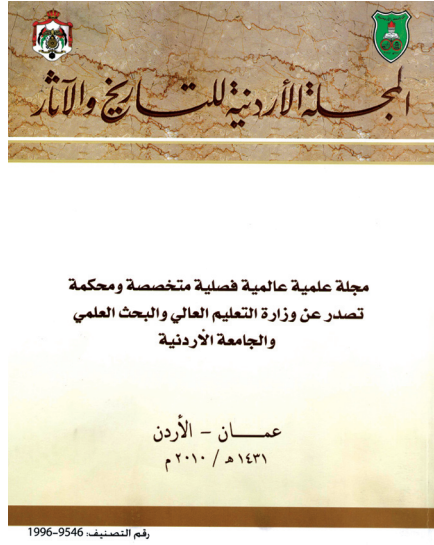 المجلة الأردنية للتاريخ والآثار
مجلة علمية عالمية فصلية متخصصة ومحكمة
تصدر عن وزارة التعليم العالي والبحث العلمي
والجامعة الأردنية
عمــــان - الأردن
١٤٣١ هـ / ٢٠١٠ م
رقم التصنيف: 9546-1996